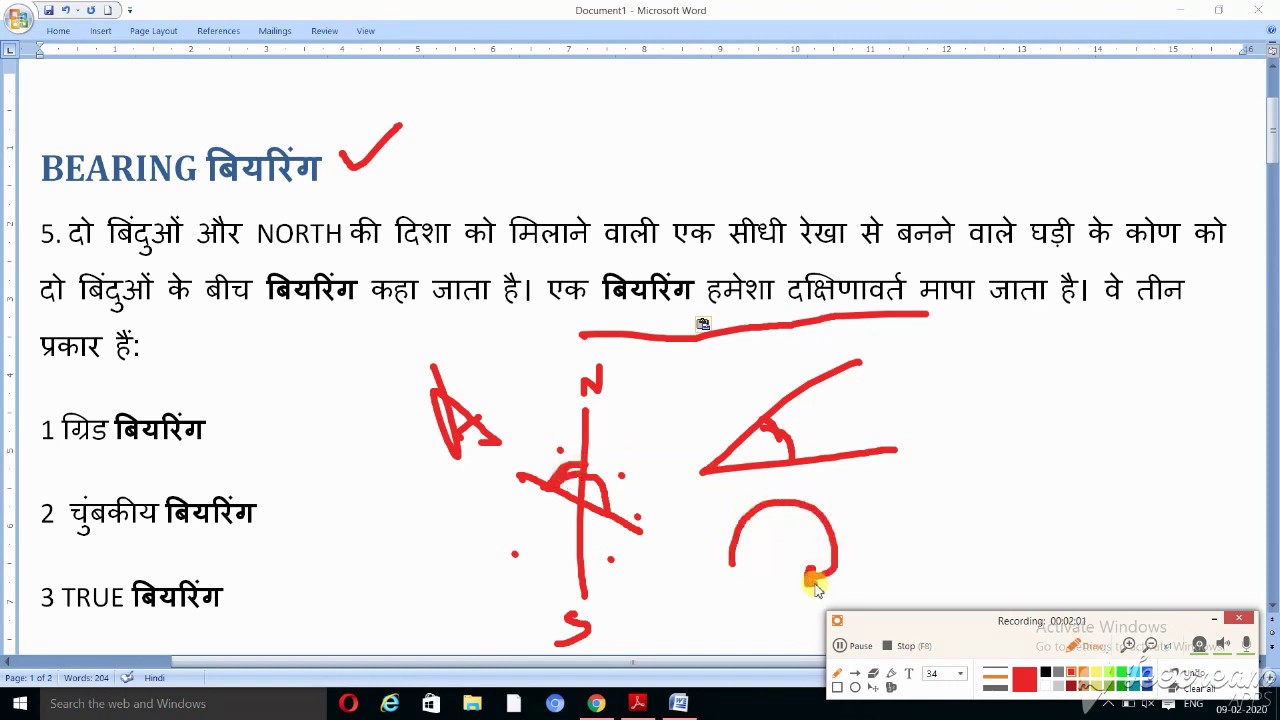 Document1 - Microsoft Word
Home Insert Page Layout References Mailings Review View
BEARING बियरिंग
5. दो बिंदुओं और NORTH की दिशा को मिलाने वाली एक सीधी रेखा से बनने वाले घड़ी के कोण को
दो बिंदुओं के बीच बियरिंग कहा जाता है। एक बियरिंग हमेशा दक्षिणावर्त मापा जाता है। वे तीन
प्रकार हैं:
N
1 ग्रिड बियरिंग
2 चुंबकीय बियरिंग
3 TRUE बियरिंग
S
Recording: 00:02:01
Activate Windows
Pause Stop (F8) Draw
T 34
Undo
Clear all
Page: 1 of 2 Words: 204 Hindi
Search the web and Windows
ENG
09-02-2020